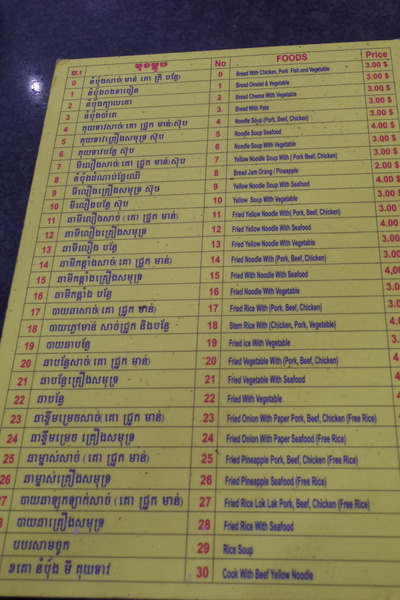 ល.រ មុខម្ហូប No FOODS Price
0 នំប៉័ងសាច់( មាន់ គោ ត្រី បន្លែ) 0 Bread With Chicken, Pork Fish and Vegetable 3.00 $
1 នំប៉័ងពងទាចៀន 1 Bread Omelet & Vegetable 3.00 $
2 នំប៉័ងក្បាលគោ 2 Bread Cheese With Vegetable 3.00 $
3 នំប៉័ងប៉ាតេ 3 Bread With Pate 3.00 $
4 គុយទាវសាច់( គោ ជ្រូក មាន់)ស៊ុប 4 Noodle Soup (Pork, Beef, Chicken) 3.00 $
5 គុយទាវគ្រឿងសមុទ្រ ស៊ុប 5 Noodle Soup Seafood 4.00 $
6 គុយទាវបន្លែ ស៊ុប 6 Noodle Soup With Vegetable 3.00 $
7 មីលឿងសាច់( គោ ជ្រូក មាន់)ស៊ុប 7 Yellow Noodle Soup With ( Pork Beef, Chicken) 3.00 $
8 នំប៉័ងដំណាប់ផ្លែឈើ 8 Bread Jum Orang / Pineapple 2.00 $
9 មីលឿងគ្រឿងសមុទ្រ ស៊ុប 9 Yellow Noodle Soup With Seafood 4.00 $
10 មីលឿងបន្លែ ស៊ុប 10 Yellow Soup With Vegetable 3.00
11 ឆាមីលឿងសាច់ ( គោ ជ្រូក មាន់) 11 Fried Yellow Noodle With( Pork, Beef, Chicken) 3.00
12 ឆាមីលឿងគ្រឿងសមុទ្រ 12 Fried Yellow Noodle With Seafood 4.00
13 ឆាមីលឿង បន្លែ 13 Fried Yellow Noodle With Vegetable 3.00
14 ឆាមីកន្តាំងសាច់( គោ ជ្រូក មាន់) 14 Fried Noodle With (Pork, Beef, Chicken) 3.00
15 ឆាមីកន្តាំងគ្រឿងសមុទ្រ 15 Fried With Noodle With Seafood 4.00
16 ឆាមីកន្តាំង បន្លែ 16 Fried Noodle With Vegetable 3.00
17 បាយឆាសាច់( គោ ជ្រូក មាន់) 17 Fried Rice With (Pork, Beef, Chicken) 3.0
18 បាយស្ពៃមាន់ សាច់ជ្រូក និងបន្លែ 18 Stem Rice With (Chicken, Pork, Vegetable) 4.0
19 បាយឆាបន្លែ 19 Fried Ice With Vegetable 3.
20 ឆាបន្លែសាច់( គោ ជ្រូក មាន់) 20 Fried Vegetable With (Pork, Beef, Chicken)
21 ឆាបន្លែគ្រឿងសមុទ្រ 21 Fried Vegetable With Seafood 4.
22 ឆាបន្លែ 22 Fried With Vegetable
23 ឆាខ្ទឹមម្រេចសាច់( គោ ជ្រូក មាន់) 23 Fried Onion With Paper Pork, Beef, Chicken (Free Rice)
24 ឆាខ្ទឹមម្រេច គ្រឿងសមុទ្រ 24 Fried Onion With Paper Seafood (Free Rice)
25 ឆាម្នាស់សាច់ ( គោ ជ្រូក មាន់) 25 Fried Pineapple Pork, Beef, Chicken (Free Rice)
26 ឆាម្នាស់គ្រឿងសមុទ្រ 26 Fried Pineapple Seafood (Free Rice)
27 បាយឆាឡុកឡាក់សាច់ ( គោ ជ្រូក មាន់) 27 Fried Rice Lok Lak Pork, Beef, Chicken (Free Rice)
បាយឆាគ្រឿងសមុទ្រ 28 Fried Rice With Seafood
បបរសាមចុក 29 Rice Soup
ខគោ នំប៉័ង មី គុយទាវ 30 Cook With Beef Yellow Noodle